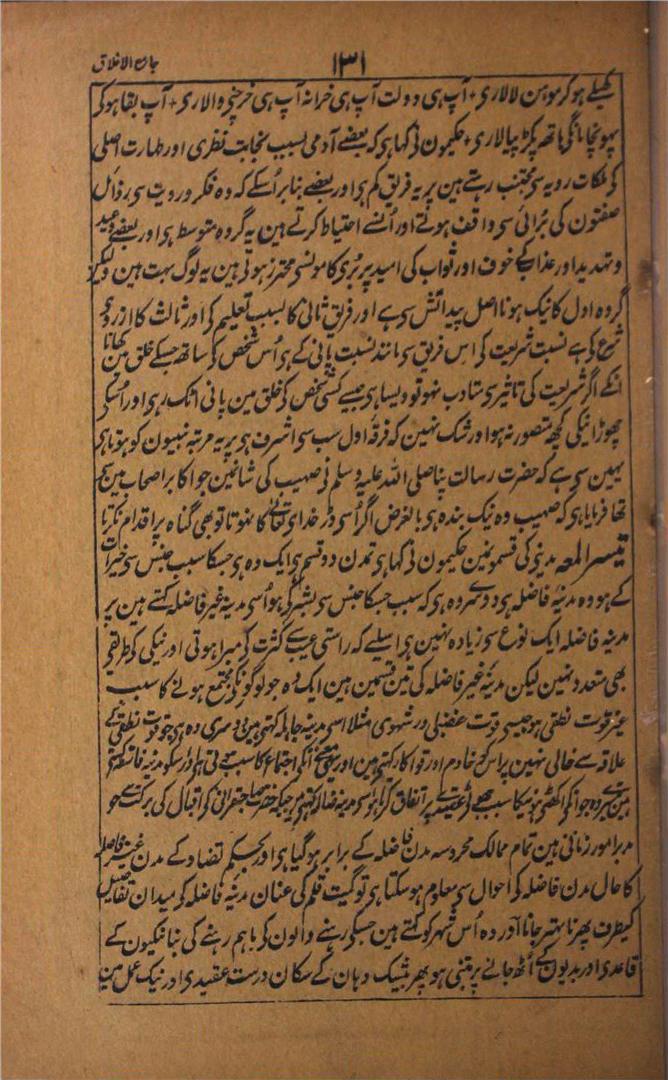 جامع الاخلاق
۱۳۱
کھیلے ہوکر موہن لالاری + آپ ہی دولت آپ ہی خزانہ آپ ہی خرچنہ والاری + آپ بقا ہوکے
پہونچا مانگی ہاتھ پکڑ پیالاری + حکیمون نی کہا ہی کہ بعضے آدمی بسبب نجابت نظری اور طہارت اصلی
کی ملکات رویہ سی مجتنب رہتے ہین پر یہ فریق کم ہی اور بعضے بنا بر اُسکے کہ وہ فکر و رویت سی رذائل
صفتون کی بُرائی سی واقف ہوتے اور اُنسے احتیاط کرتے ہین یہ گروہ متوسط ہی اور بعضے وعید
و تہدید اور عذاب کے خوف اور ثواب کی امید پر بُری کامونسی محترز ہوتی ہین یہ لوگ بہت ہین ولیکن
گروہ اول کا نیک ہونا اصل پیدائش سی ہے اور فریق ثانی کا بسبب تعلیم کی اور ثالث کا از روی
شرع کی ہے نسبت شریعت کی اس فریق سی مانند نسبت پانی کے ہی اُس شخص کو ساتھ جسکے حلق مین کھانا
اٹکے اگر شریعت کی تاثیر سی متادب نہو تو ویسا ہی جیسے کسی شخص کو حلق مین پانی اٹک رہی اور اُسکی
چھوڑانیکی کچھ متصور نہو اور شک نہین کہ فرقۂ اول سب سی اشرف ہی پر یہ مرتبہ نبیون کو ہوتا ہی
یہین سی ہے کہ حضرت رسالت پناہ صلی اللہ علیہ وسلم نی صہیب کی شانین جو اکابر اصحاب مین سی
تھا فرمایا ہی کہ صہیب وہ نیک بندہ ہی بالغرض اگر اُسی ڈر خدای تعالیٰ کا نہوتا تو بھی گناہ پر اقدام نکرتا
تیسرا لمعہ مدینی کی قسمونین حکیمون نی کہا ہی تمدن دو قسم ہی ایک وہ ہی جسکا سبب جنس سی خیرات
کے ہو وہ مدینۂ فاضلہ ہی دوسرے وہ ہی کہ سبب جسکا جنس سی بشر کی ہو اُسی مدینہ غیر فاضلہ کہتے ہین پر
مدینہ فاضلہ ایک نوع سی زیادہ نہین ہی اسلیے کہ راستی عیب کثرت کی مبرا ہوتی اور نیکی کی طریقی
بھی متعدد نہین لیکن مدینۂ غیر فاضلہ کی تین قسمین ہین ایک وہ جو لوگونکی مجتمع ہونے کا سبب
غیر قوت نطقی ہو جیسی قوت غضبی و شہوی مثلا اسی مدینہ جاہلہ کہتی ہین دوسری وہ ہی جو قوت نطقی کے
علاقہ سے خالی نہین پر اس کو خادم اور قوا کا
مدبر امور زمانی ہین تمام ممالک محروسہ مدن فاضلہ کے برابر ہوگیا ہی اور بحکم تضاد کے مدن غیر فاضلہ
کا حال مدن فاضلہ کی احوال سی معلوم ہوسکتا ہی تو گیت قلم کی عنان مدینہ فاضلہ کی میدان تفاصیل
کیطرف پھرنا بہتر جانا اور وہ اُس شہر کو کہتے ہین جسکی رہنے والون کی باہم رہنے کی بنا نیکیون کے
قاعدی اور بدیون کے اُٹھ جانے پر مبنی ہو پھر بیشک وہان کے سکان درست عقیدی اور نیک عمل مین